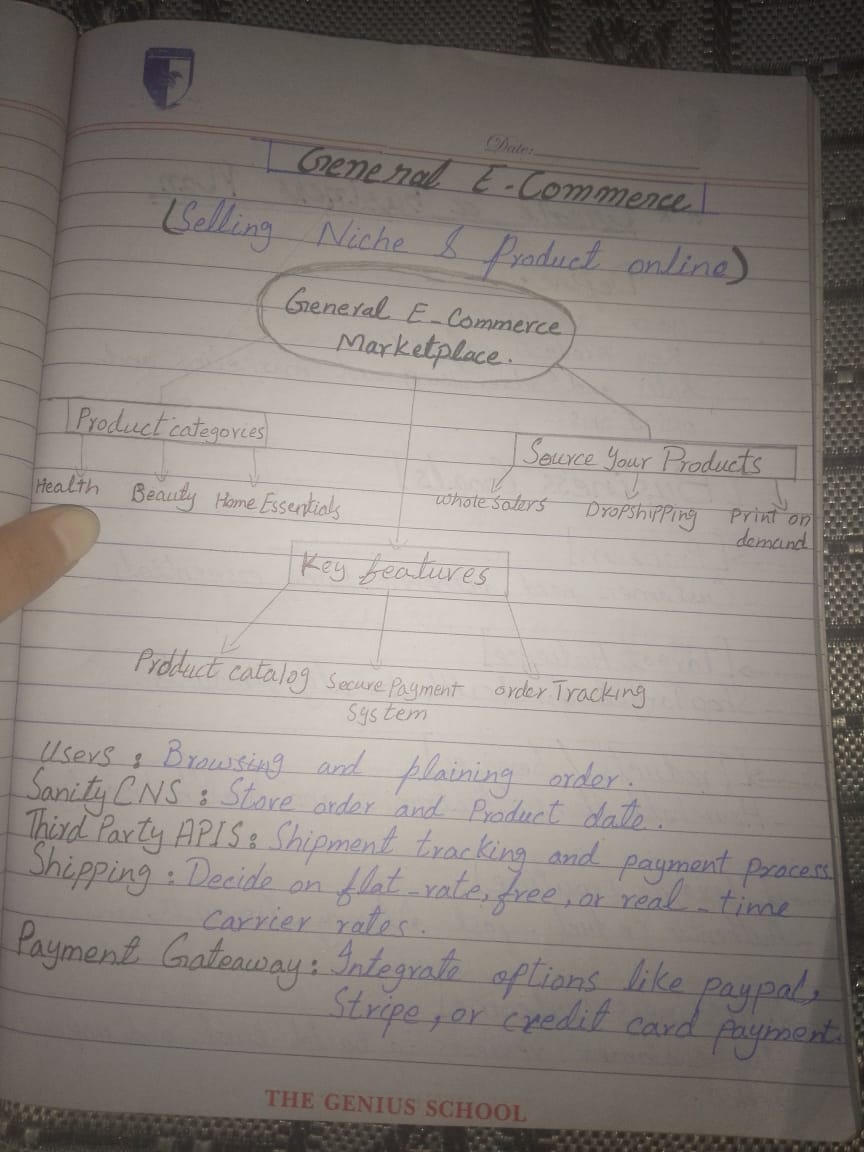 Date:
General E-Commerce
(Selling Niche & Product online)
General E-Commerce
Marketplace.
Product categories
Source Your Products
Health Beauty Home Essentials
Whole Salers Dropshipping Print on
demand
Key features
Product catalog Secure Payment order Tracking
System
Users : Browsing and plaining order.
Sanity CNS : Store order and Product date.
Third Party APIS : Shipment tracking and payment process
Shipping : Decide on flat-rate, free, or real-time
carrier rates.
Payment Gateaway : Integrate options like paypal,
Stripe, or credit card payment.
THE GENIUS SCHOOL